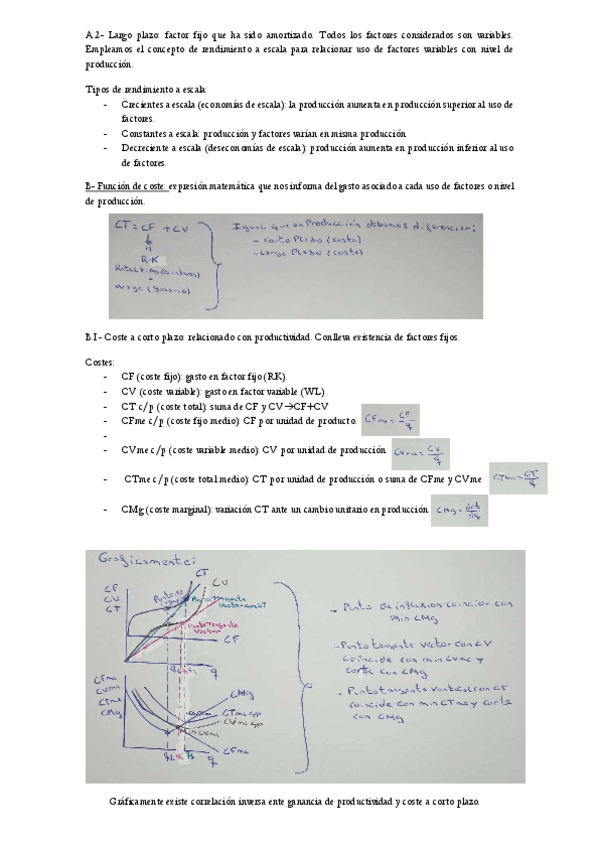 A.2- Largo plazo: factor fijo que ha sido amortizado. Todos los factores considerados son variables.
Empleamos el concepto de rendimiento a escala para relacionar uso de factores variables con nivel de
producción.
Tipos de rendimiento a escala:
- Crecientes a escala (economías de escala): la producción aumenta en producción superior al uso de
factores.
- Constantes a escala: producción y factores varían en misma producción.
- Decreciente a escala (deseconomías de escala): producción aumenta en producción inferior al uso
de factores.
B- Función de coste: expresión matemática que nos informa del gasto asociado a cada uso de factores o nivel
de producción.
CT = CF + CV
R·K
Igual que en Producción debemos diferenciar:
- Corto Plazo (costo)
- Largo Plazo (costo)
B.1- Coste a corto plazo: relacionado con productividad. Conlleva existencia de factores fijos.
Costes:
- CF (coste fijo): gasto en factor fijo (RK).
- CV (coste variable): gasto en factor variable (WL)
- CT c/p (coste total): suma de CF y CV →CF+CV
- CFme c/p (coste fijo medio): CF por unidad de producto. CFme = CF/q
-
- CVme c/p (coste variable medio): CV por unidad de producción. CVme = CV/q
- CTme c/p (coste total medio): CT por unidad de producción o suma de CFme y CVme CTme = CT/q
- CMg (coste marginal): variación CT ante un cambio unitario en producción. CMg =
Graficamente:
CT
CV
CF
CV
CT
CF
q
- Punto de inflexion coincide con
min CMg
- Punto tangente vector con CV
coincide con min CVme y
corte con CMg
- Punto tangente con CT
coincide con min CTme y corte
con CMg
CFme
CVme
CTme
CMg
CMg
CTme c/p
CVme c/p
CFme
q
Gráficamente existe correlación inversa ente ganancia de productividad y coste a corto plazo.